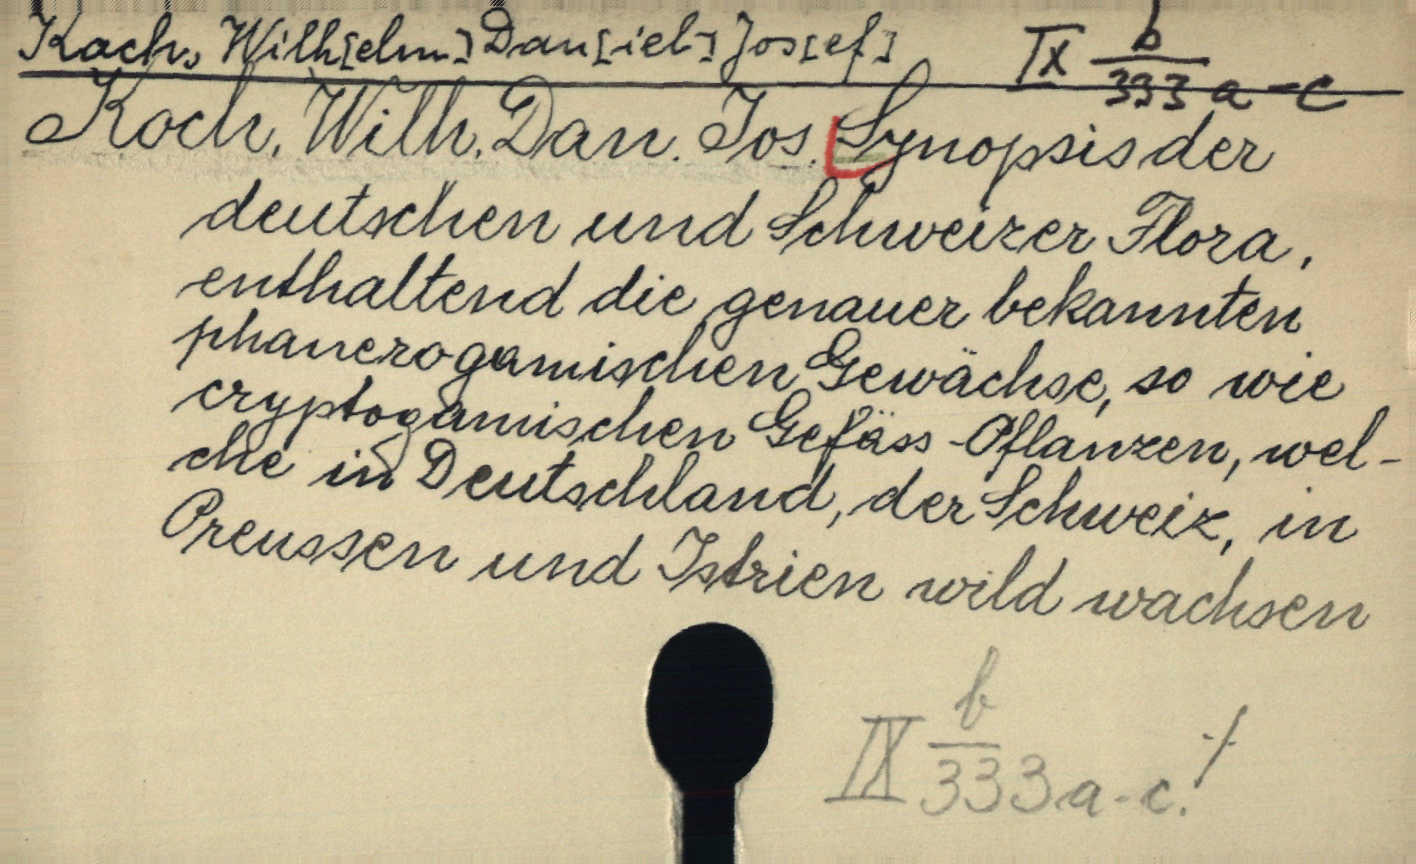 Koch, Wilh[elm] Dan[iel] Jos[ef] IX b/333 a-c
Koch, Wilh. Dan. Jos. Synopsis der
deutschen und Schweizer Flora,
enthaltend die genauer bekannten
phanerogamischen Gewächse, so wie
cryptogamischen Gefäss-Pflanzen, wel-
che in Deutschland, der Schweiz, in
Preussen und Istrien wild wachsen
IX b/333 a-c. ./.